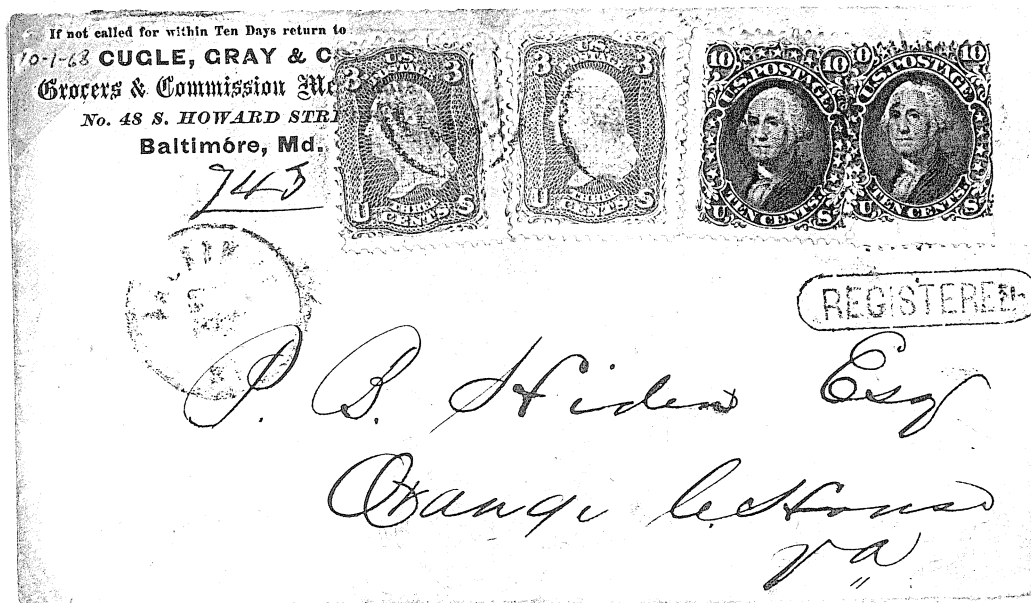 If not called for within Ten Days return to
10-1-68 CUGLE, GRAY & C
Grocers & Commission Me
No. 48 S. HOWARD STRE
Baltimore, Md.
745
3 U.S. POSTAGE 3
U THREE CENTS S
3 U.S. POSTAGE 3
U THREE CENTS S
10 U.S. POSTAGE 10
U TEN CENTS S
10 U.S. POSTAGE 10
U TEN CENTS S
REGISTERED
P. B. Hiden Esq
Orange C. House
Va